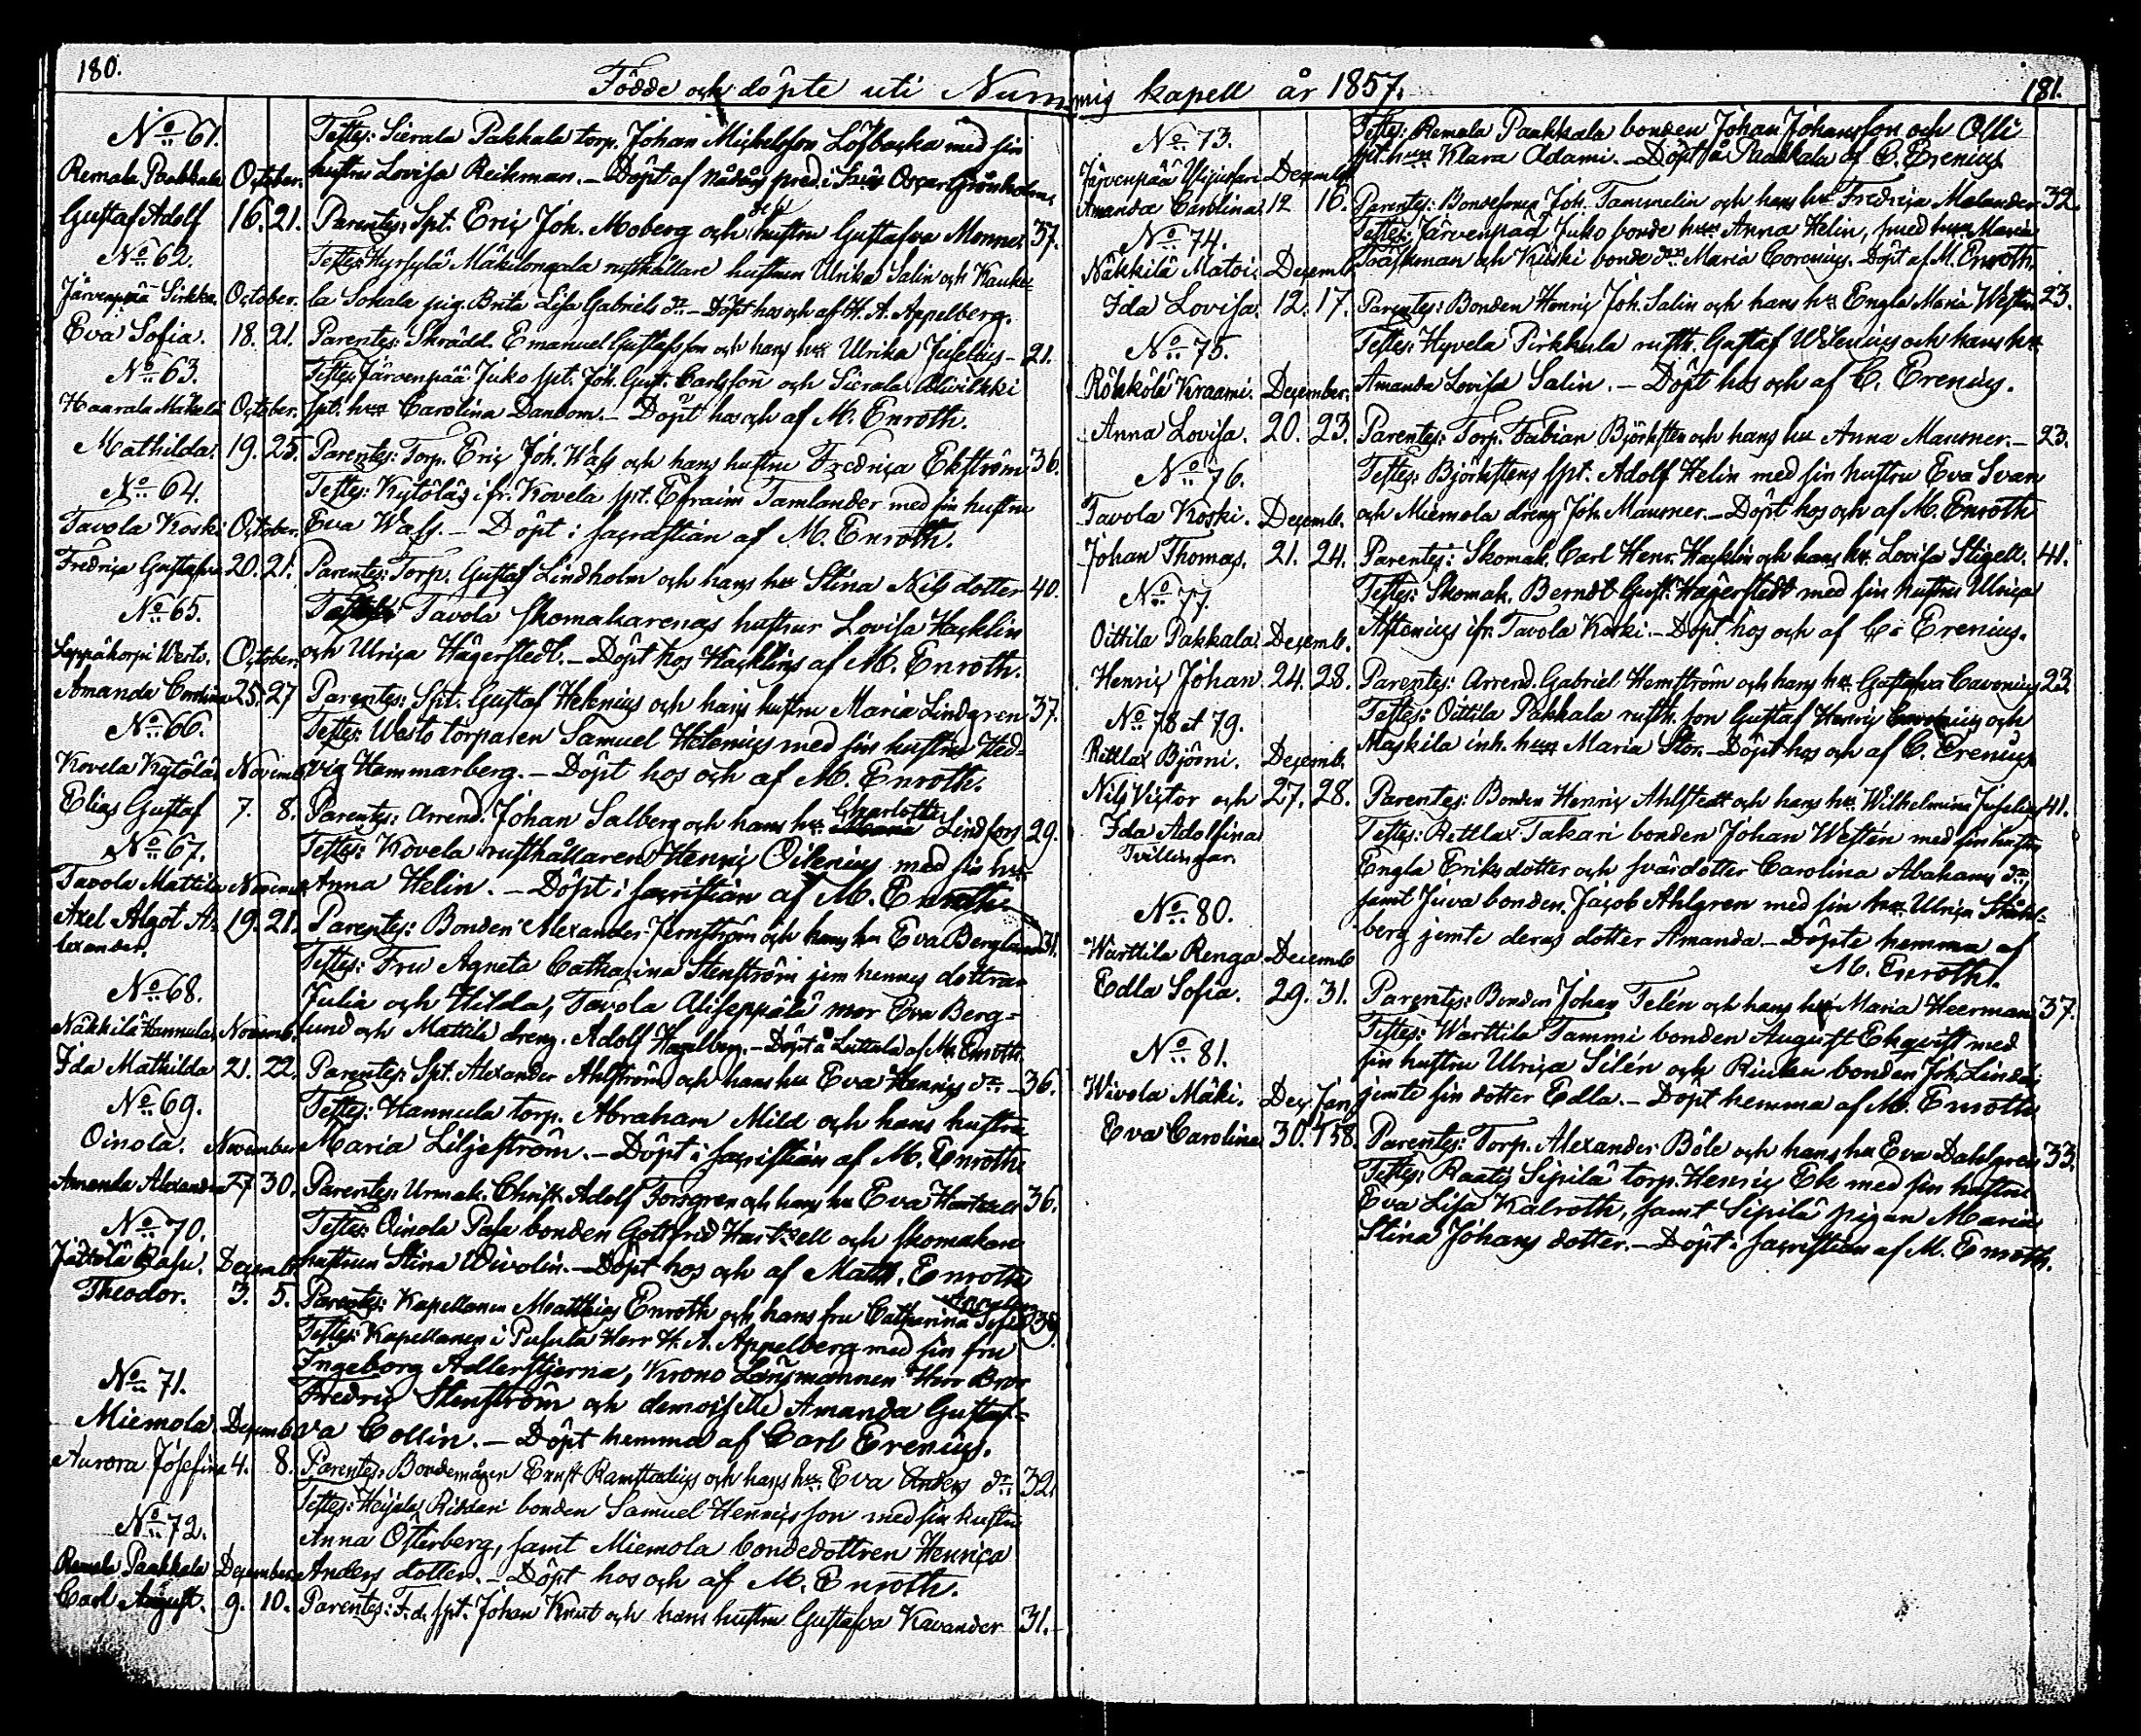 180.
Födde och döpte uti Nummis kapell år 1857.
181.
No 61.
Testes: Sierala Pakkala torp. Johan Michelsson Löfbacka med sin
Remala Paakkala October. hustru Lovisa Reikman. – Döpt af nådårs pred. i Oscar Grönholm.
Gustaf Adolf 16. 21. Parentes: Spt. Eric Joh. Moberg och hustru Gustafva Monner 37.
No 62.
Testes: Hyrsylä Mäkilongala rusthållare hustrun Ulrika Salin och Kauke-
Järvenpää Sirkka. October. la Sokala pig. Brita Lisa Gabriels dr. – Döpt hos och af H. A. Appelberg.
Eva Sofia. 18. 21. Parentes: Skrädd. Emanuel Gustafsson och hans hu Ulrika Juselius – 21.
No 63.
Testes: Järvenpää Juko spt. Joh. Gust. Carlsson och Sierala Alivikki
Haarala Mäkelä October. spt. hu Carolina Dandom. – Döpt hos och af M. Enroth.
Mathilda. 19. 25. Parentes: Torp. Eric Joh. Wass och hans hustru Fredrica Ekström 36.
No 64.
Testes: Kytöläs i fr. Kovela spt. Efraim Tamlander med sin hustru
Tavola Koski October. Eva Wass. – Döpt i sacristian af M. Enroth.
Fredrica Gustafva 20. 21. Parentes: Torp. Gustaf Lindholm och hans hu Stina Nils dotter 40.
No 65.
Testes: Tavola skomakarenas hustrur Lovisa Hacklin
Leppäkorpi Westo. October. och Ulrica Hägerstedt. – Döpt hos Hacklins af M. Enroth.
Amanda Carolina 25. 27 Parentes: Spt. Gustaf Helenius och hans hustru Maria Lindgren 37.
No 66.
Testes: Westo torparen Samuel Helenius med sin hustru Hed-
Kovela Kytölä Novemb. vig Hammarberg. – Döpt hos och af M. Enroth.
Elias Gustaf 7. 8. Parentes: Arrend. Johan Salberg och hans hu Charlotta Lindfors 29.
No 67.
Testes: Kovela rusthållaren Henric Oilenius med sin hu
Tavola Mattila Novemb. Anna Helin. – Döpt i sacristian af M. Enroth.
Axel Algot A- 19. 21. Parentes: Bonden Alexander Jernström och hans hu Eva Berglund 31.
lexander.
Testes: Fru Agneta Catharina Stenström jem hennes dottrar
No 68.
Julia och Hilda, Tavola Aliseppälä mor Eva Berg-
Näkkilä Hannula Novemb. lund och Mattila dreng. Adolf Hagelberg. – Döpt å Luttula af M. Enroth.
Ida Mathilda 21. 22. Parentes: Spt. Alexander Ahlström och hans hu Eva Henrics dr. – 36.
No 69.
Testes: Hannula torp. Abraham Mild och hans hustru
Oinola. November Maria Liljeström. – Döpt i sacristian af M. Enroth.
Amanda Alexandra 27. 30. Parentes: Urmak. Christ. Adolf Forsgren och hans hu Eva Hartzell 36.
No 70.
Testes: Oinola Pasu bonden Gottfrid Hartzell och skomakare
Jättölä Pasu. Decemb. hustrun Stina Wivolin. – Döpt hos och af Matth. Enroth
Theodor. 3. 5. Parentes: Kapellanen Matthias Enroth och hans fru Catharina Sofia
Testes: Kapellanen i Pusula Herr H. A. Appelberg med sin fru
Ingeborg Adlerstjerna, Krono Länsmannen Herr Bror
No 71.
Fredric Stenström och demoiselle Amanda Gustaf-
Miemola. Decemb. va Collin. – Döpt hemma af Carl Erenius.
Aurora Josefina 4. 8. Parentes: Bondemågen Ernst Ramstadius och hans hu Eva Anders dr. 32.
Testes: Heijala Riddari bonden Samuel Henricsson med sin hustru
No 72.
Anna Österberg, samt Miemola bondedottren Henrica
Remala Paakkala December Anders dotter. – Döpt hos och af M. Enroth.
Carl August. 9. 10. Parentes: F.d. spt. Johan Knut och hans hustru Gustafva Kavander 31.
No 73.
Testes: Remala Paakkala bonden Johan Johansson och Olli
spt. hu Klara Adami. – Döpt å Paakkala af C. Erenius.
Järvenpää Decemb.
Amanda Carolina. 12 16. Parentes: Bondesonen Joh. Tammelin och hans hu Fredrica Malander 32.
No 74.
Testes: Järvenpää Juko bonde hu Anna Helin, med hu Maria
Näkkilä Matoi. Decemb. Träskman och Kiiski bonde dr Maria Coronius. Döpt af M. Enroth.
Ida Lovisa. 12. 17. Parentes: Bonden Henric Joh. Salin och hans hu Engla Maria Westén 23.
No 75.
Testes: Hyvela Pirkkula rusth. Gustaf Widenius och hans hu
Röhkölä Kraami. December. Amanda Lovisa Salin. – Döpt hos och af C. Erenius.
Anna Lovisa. 20. 23. Parentes: Torp. Fabian Björksten och hans hu Anna Maurner. – 23.
No 76.
Testes: Björkstens spt. Adolf Helin med sin hustru Eva Svan
Tavola Koski. Decemb. och Miemola dreng Joh. Maurner. – Döpt hos och af M. Enroth
Johan Thomas. 21. 24. Parentes: Skomak. Carl Henr. Hacklin och hans hu. Lovisa Stigell. 41.
No 77.
Testes: Skomak. Berndt Gust. Hägerstedt med sin hustru Ulrica
Oittila Pakkala. Decemb. Astenius ifr. Tavola Koski. – Döpt hos och af C. Erenius.
Henric Johan 24. 28. Parentes: Arrend. Gabriel Hemström och hans hu. Gustafva Cavonius 23.
No 78 et 79.
Testes: Oittila Pakkala rusth. son Gustaf Henric och
Rettlax Björni. Decemb. Maskila inh. hu Maria Stor. – Döpt hos och af C. Erenius.
Nils Victor och 27. 28. Parentes: Bonden Henric Ahlstedt och hans hu. Wilhelmina Juselius 41.
Ida Adolfina Testes: Rettlax Takari bonden Johan Westén med sin hustru
Tvillingar.
Engla Eriksdotter och svärdotter Carolina Abrahams dr,
No 80.
samt Juva bonden Jacob Ahlgren med sin hu Ulrica Ståhl-
berg jemte deras dotter Amanda. – Döpte hemma af
Warttila Renga Decemb M. Enroth.
Edla Sofia. 29. 31. Parentes: Bonden Johan Telén och hans hu Maria Heerman 37.
No 81.
Testes: Warttila Tammi bonden August Ekqvist med
sin hustru Ulrica Silén och bonden Joh. Lindén
Wivola Mäki. Dec. Jan. jemte sin dotter Edla. – Döpt hemma af M. Enroth
Eva Carolina 30. 1 58. Parentes: Torp. Alexander Böle och hans hu Eva Dahlgren 33.
Testes: Raatis Sipilä torp. Henric Ek med sin hustru
Eva Lisa Kalroth, samt Sipilä pigan Maria
Stina Johans dotter. – Döpt i sacristian af M. Enroth.